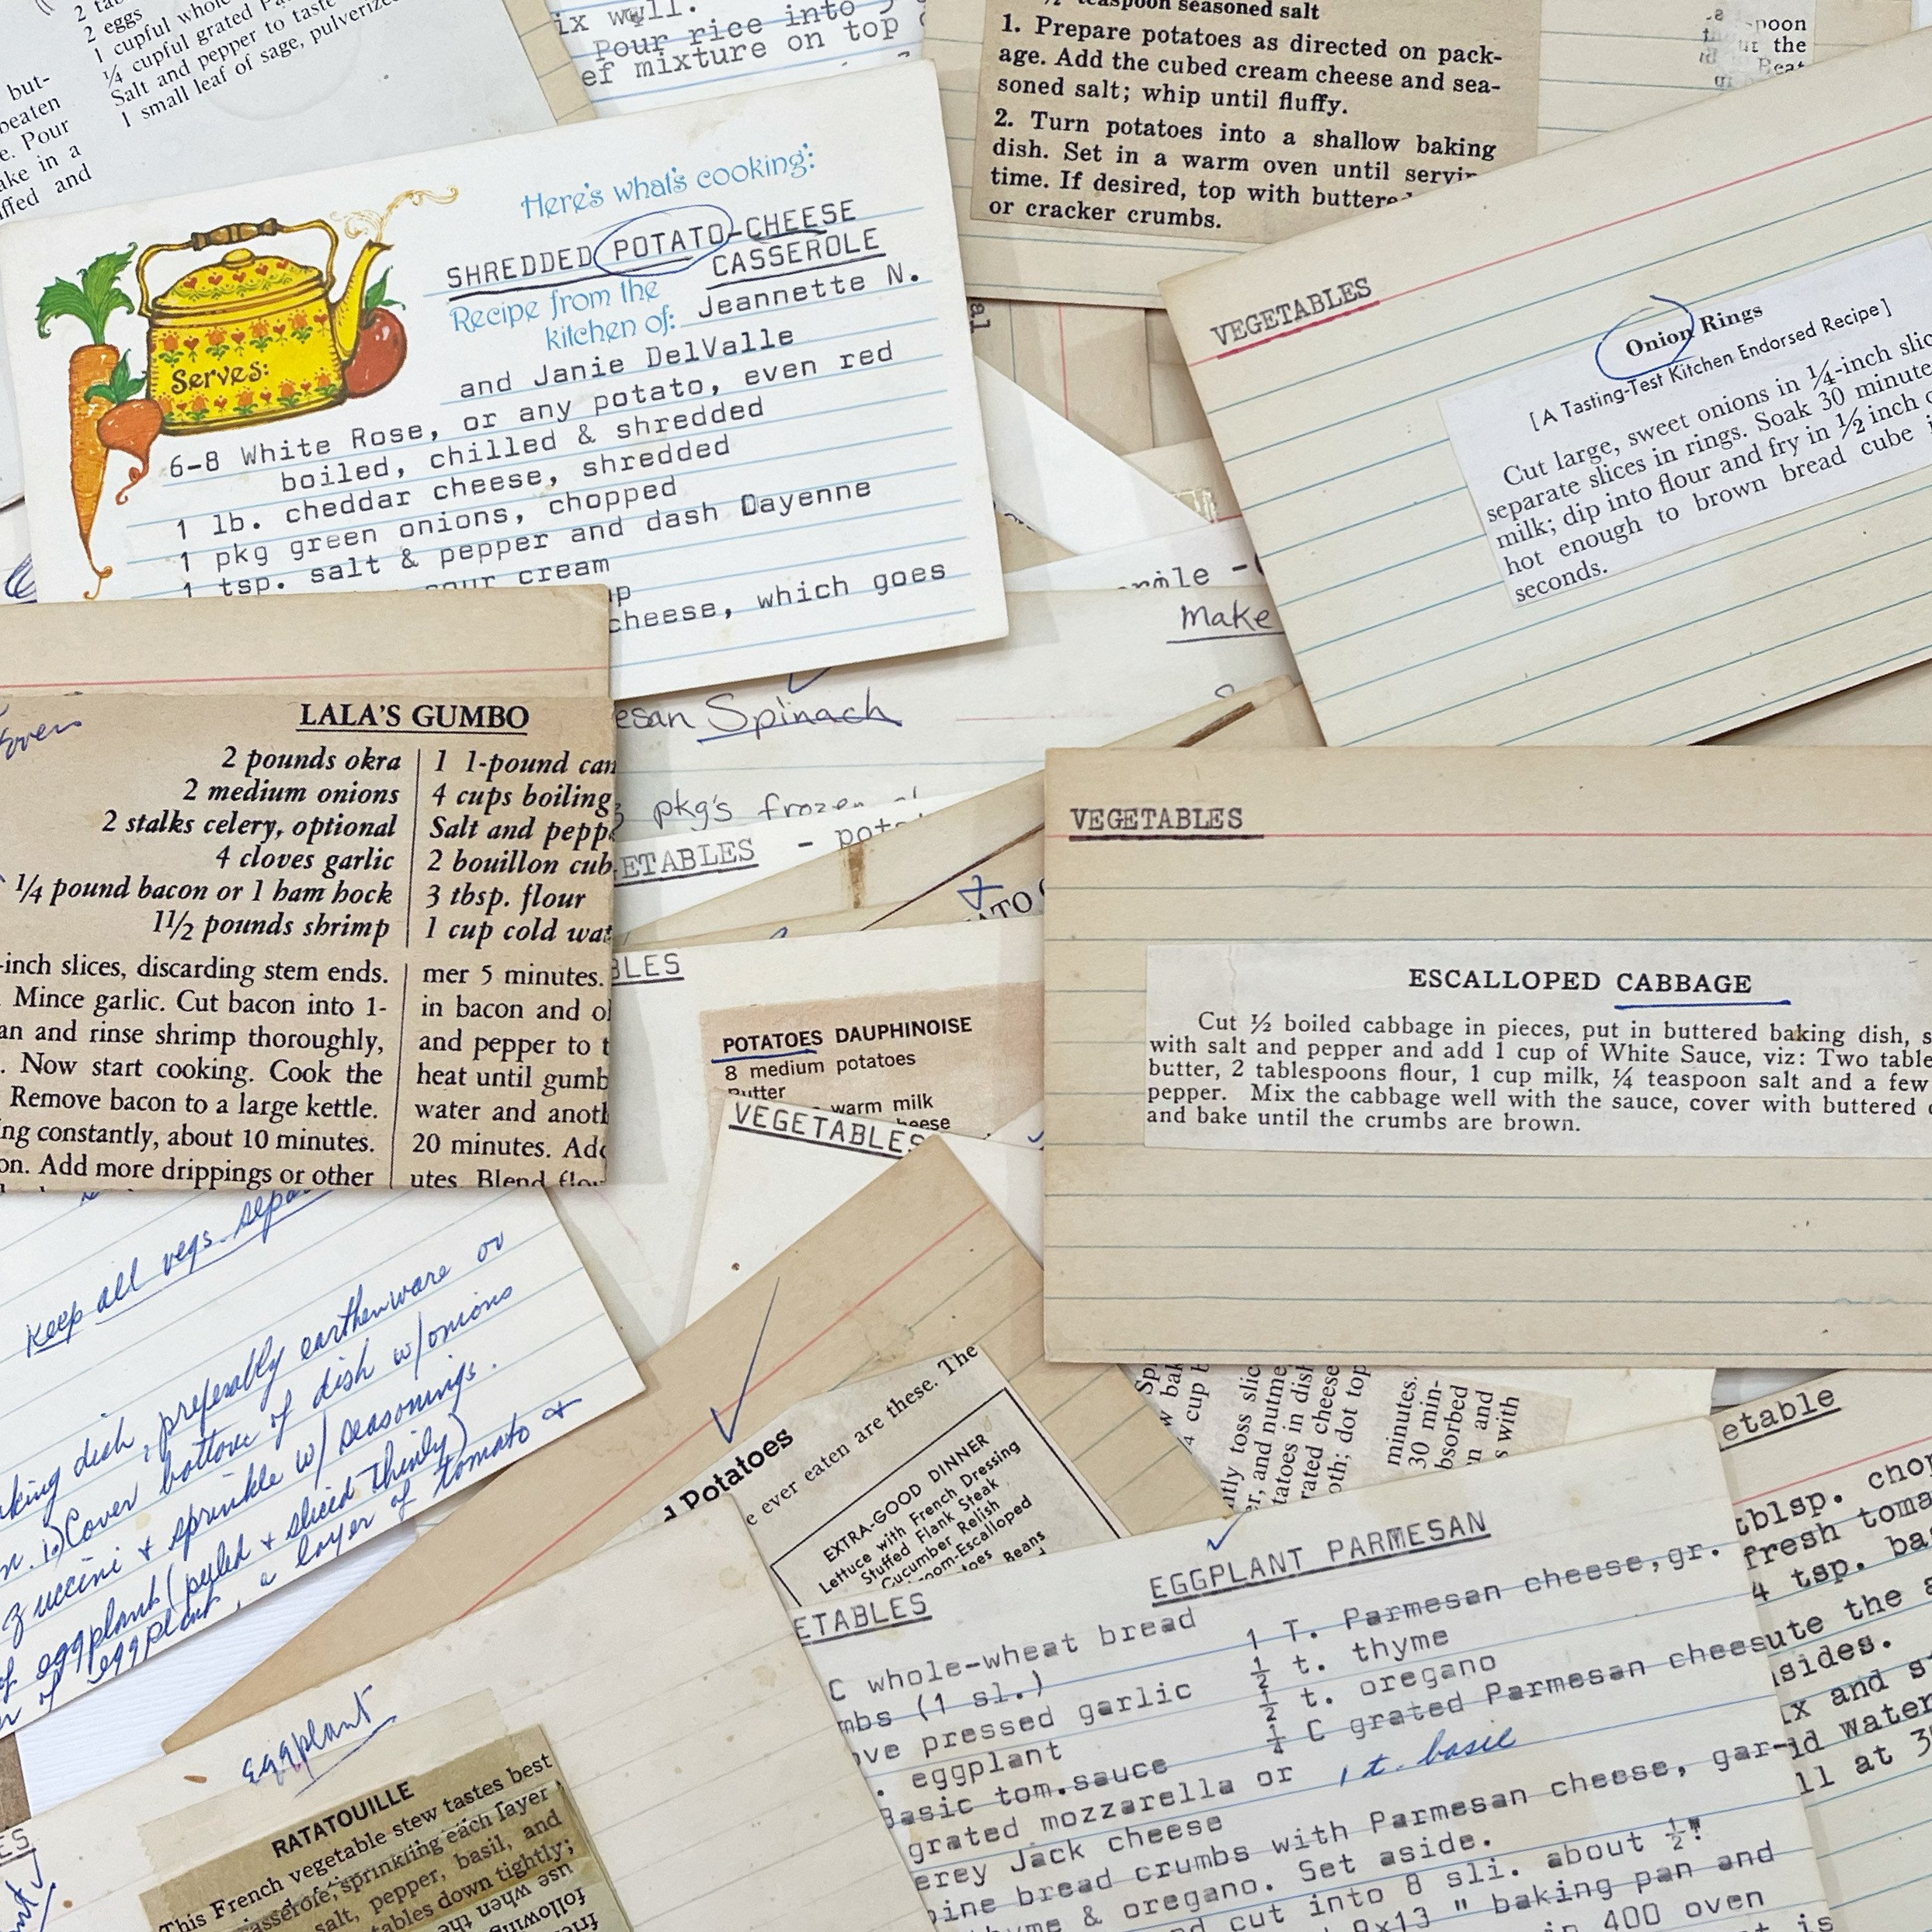 2 eggs
1 cupful whole
¼ cupful grated
Salt and pepper to taste
1 small leaf of sage, pulverized
but-
beaten
e. Pour
ake in a
ffed and
ix well.
Pour rice into
ef mixture on top
teaspoon seasoned salt
1. Prepare potatoes as directed on pack-
age. Add the cubed cream cheese and sea-
soned salt; whip until fluffy.
2. Turn potatoes into a shallow baking
dish. Set in a warm oven until serving
time. If desired, top with buttered
or cracker crumbs.
spoon
the
Beat
Here's what's cooking:
SHREDDED POTATO-CHEESE
CASSEROLE
Recipe from the
kitchen of: Jeannette N.
and Janie DelValle
Serves:
6-8 White Rose, or any potato, even red
boiled, chilled & shredded
1 lb. cheddar cheese, shredded
1 pkg green onions, chopped
1 tsp. salt & pepper and dash Dayenne
sour cream
cheese, which goes
VEGETABLES
Onion Rings
[A Tasting-Test Kitchen Endorsed Recipe]
Cut large, sweet onions in ¼-inch slic
separate slices in rings. Soak 30 minute
milk; dip into flour and fry in ½ inch
hot enough to brown bread cube
seconds.
Make
esan Spinach
pkg's frozen
ETABLES - pot
over
LALA'S GUMBO
2 pounds okra
2 medium onions
2 stalks celery, optional
4 cloves garlic
¼ pound bacon or 1 ham hock
1½ pounds shrimp
1 1-pound can
4 cups boiling
Salt and pepp
2 bouillon cub
3 tbsp. flour
1 cup cold wat
-inch slices, discarding stem ends.
Mince garlic. Cut bacon into 1-
an and rinse shrimp thoroughly,
. Now start cooking. Cook the
Remove bacon to a large kettle.
ng constantly, about 10 minutes.
on. Add more drippings or other
mer 5 minutes.
in bacon and o
and pepper to t
heat until gumb
water and anoth
20 minutes. Add
utes. Blend flou
ATO
BLES
POTATOES DAUPHINOISE
8 medium potatoes
Butter
warm milk
heese
VEGETABLES
VEGETABLES
ESCALLOPED CABBAGE
Cut ½ boiled cabbage in pieces, put in buttered baking dish, s
with salt and pepper and add 1 cup of White Sauce, viz: Two table
butter, 2 tablespoons flour, 1 cup milk, ¼ teaspoon salt and a few
pepper. Mix the cabbage well with the sauce, cover with buttered
and bake until the crumbs are brown.
Keep all vegs. separ
aking dish, preferably earthenware or
n. 1.) Cover bottom of dish w/onions
zuccini & sprinkle w/ seasonings.
of eggplant (peeled & sliced thinly)
of eggplant, a layer of tomato &
Potatoes
e ever eaten are these. The
EXTRA-GOOD DINNER
Lettuce with French Dressing
Stuffed Flank Steak
Cucumber Relish
room-Escalloped
toes
Beans
4 cup
tly toss slic
er, and nutme
tatoes in dish
rated cheese
oth; dot top
minutes.
30 min-
bsorbed
n and
s with
etable
tblsp. chop
fresh toma
4 tsp. ba
ute the
sides.
ix and st
id water
ll at 3
ETABLES
EGGPLANT PARMESAN
C whole-wheat bread
mbs (1 sl.)
ove pressed garlic
. eggplant
Basic tom.sauce
grated mozzarella or
erey Jack cheese
1 T. Parmesan cheese,gr.
½ t. thyme
½ t. oregano
¼ C grated Parmesan cheese
1 t. basil
bine bread crumbs with Parmesan cheese, gar-
hyme & oregano. Set aside.
nd cut into 8 sli. about ½"
9x13 " baking pan and
in 400 oven
is
Eggplant
RATATOUILLE
This French vegetable stew tastes best
asserole, sprinkling each layer
salt, pepper, basil, and
tables down tightly;
use when the
following
ES